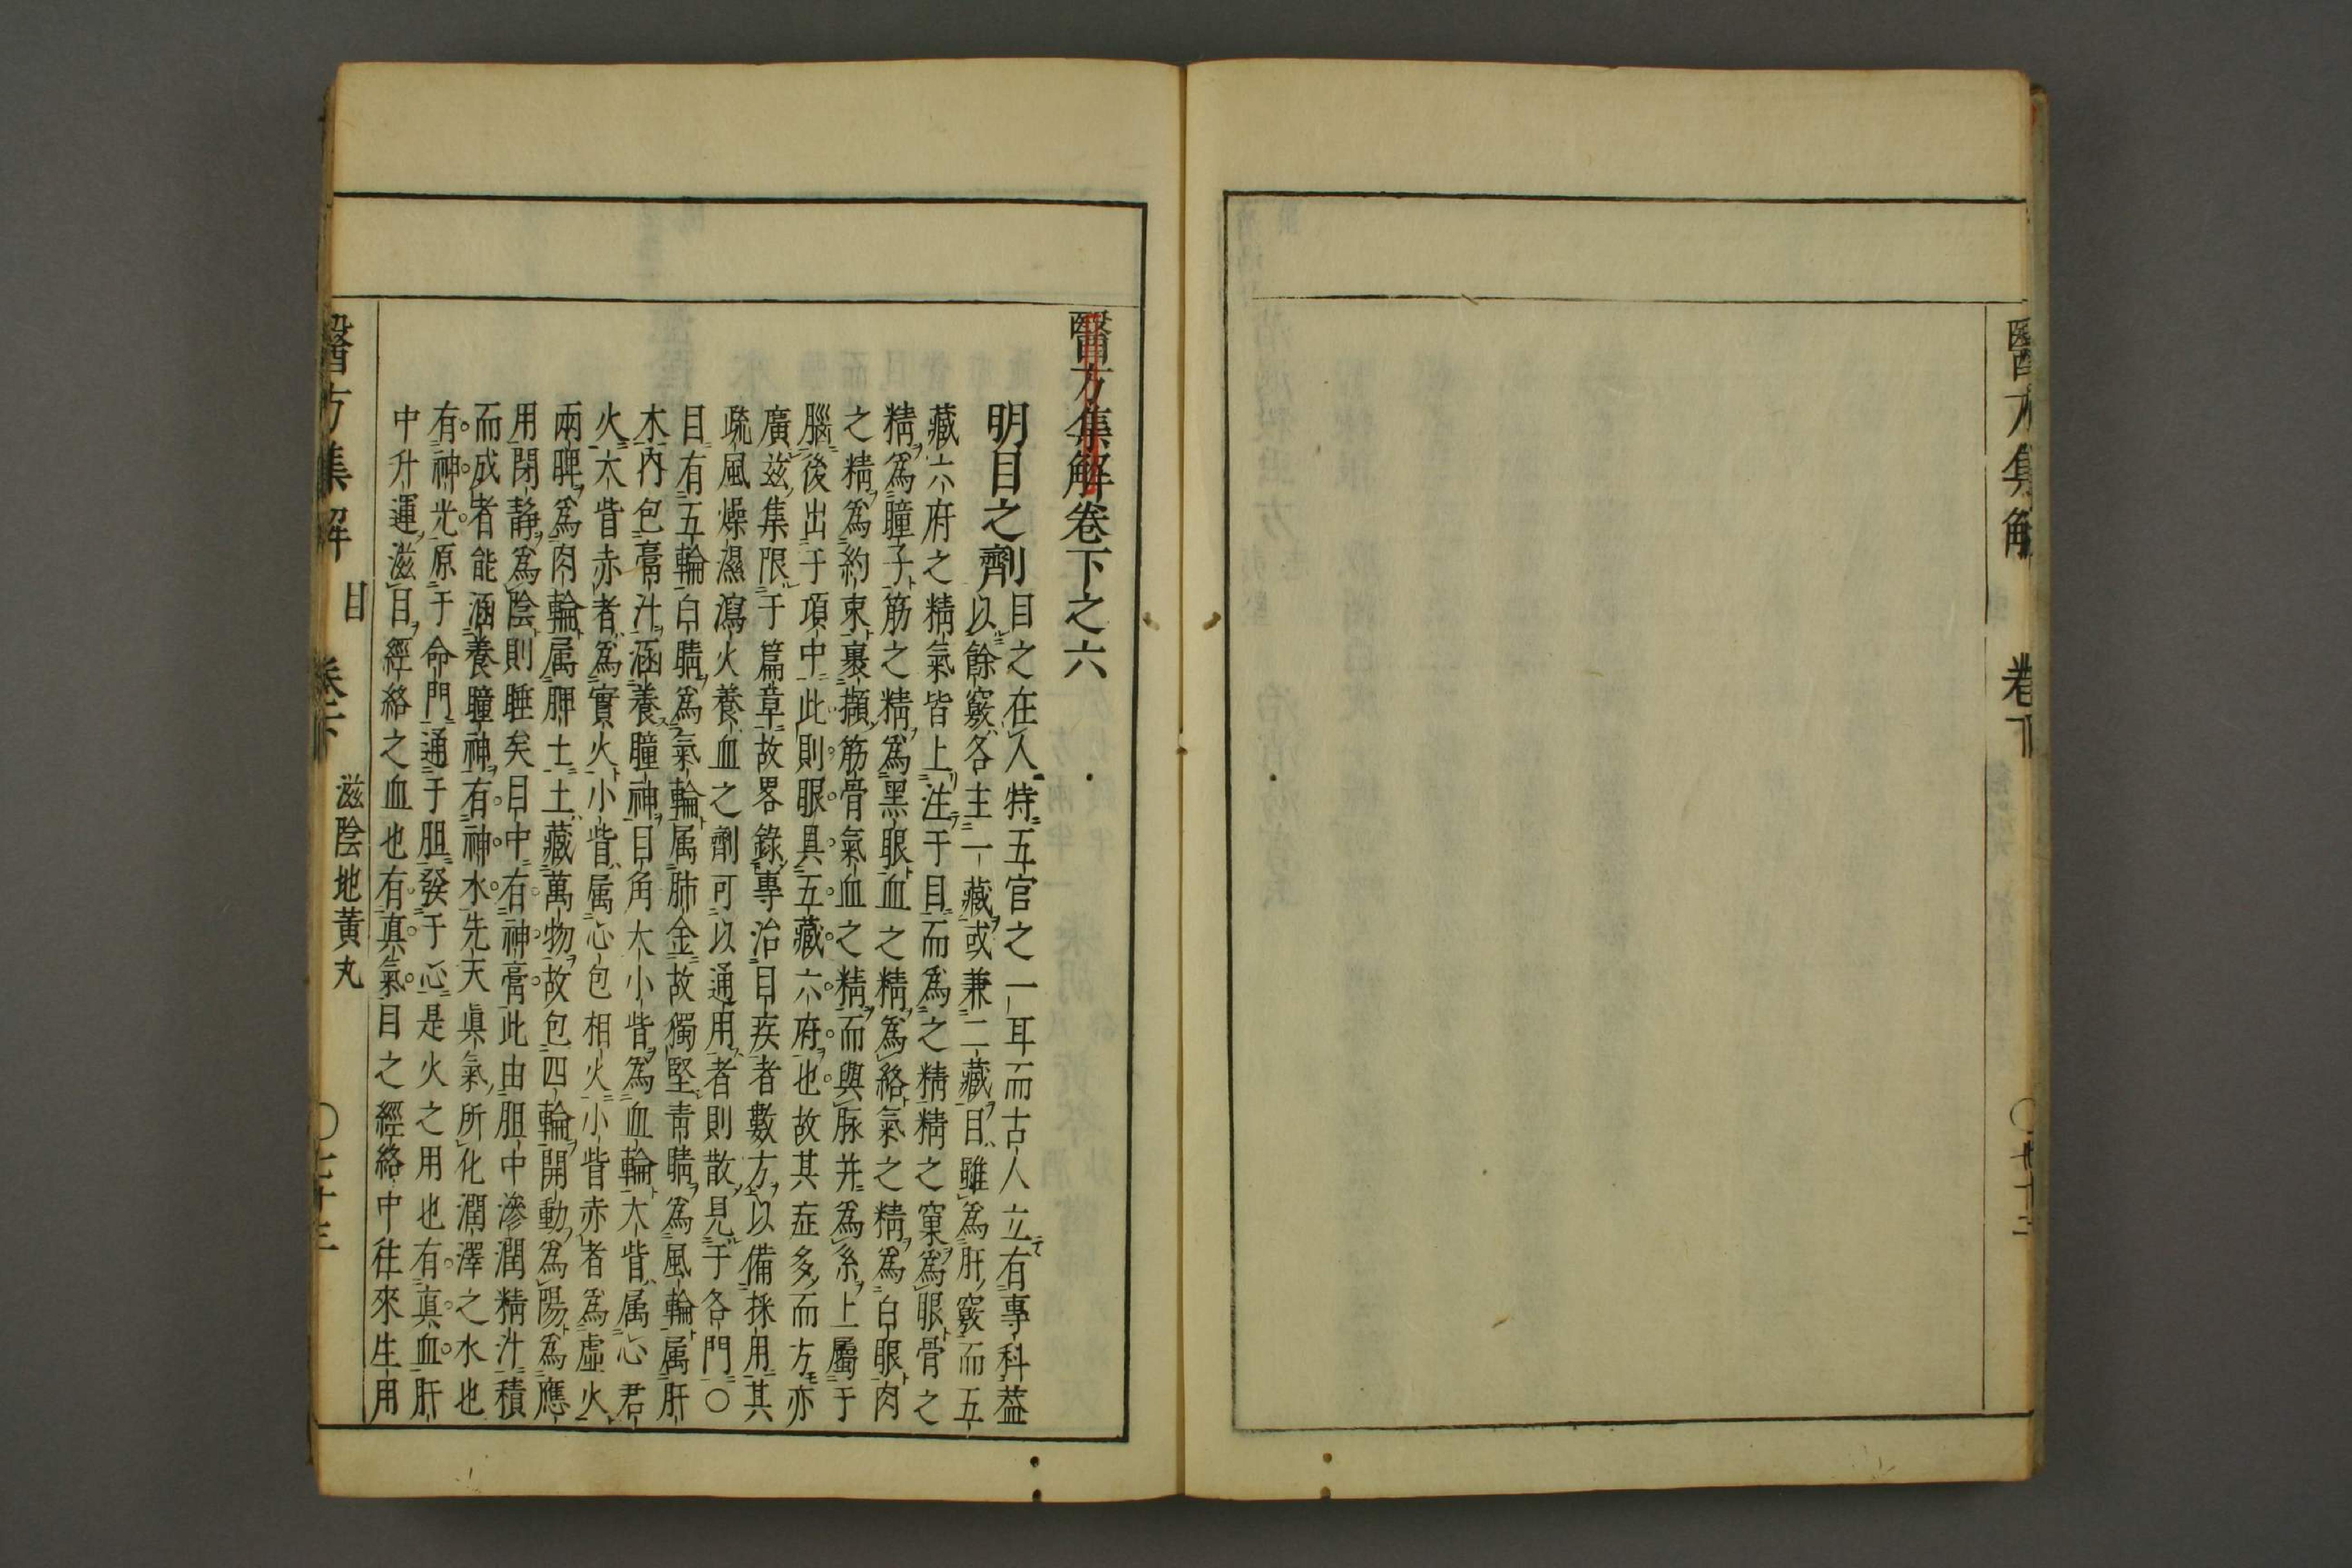 醫方集解 卷下
醫方集解卷下之六
明目之劑
目之在人特五官之一耳而古人立有專科葢
以餘竅各主一藏或兼二藏目雖爲肝竅而五
藏六府之精氣皆上注于目而爲之精精之窠爲眼骨之
精爲瞳子筋之精爲黑眼血之精爲絡氣之精爲白眼肉
之精爲約束裹擷筋骨氣血之精而與脉并爲系上屬于
腦後出于項中此則眼具五藏六府也故其症多而方亦
廣兹集限于篇章故畧錄專治目疾者數方以備採用其
疏風燥濕瀉火養血之劑可以通用者則散見于各門〇
目有五輪白睛爲氣輪属肺金故獨堅青睛爲風輪属肝
木內包膏汁涵養瞳神目角大小眥爲血輪大眥属心君
火大眥赤者爲實火小眥属心包相火小眥赤者爲虛火
兩睥爲肉輪属脾土土藏萬物故包四輪開動爲陽爲應
用閉静爲陰則睡矣目中有神膏此由胆中滲潤精汁積
而成者能涵養瞳神有神水先天真氣所化潤澤之水也
有神光原于命門通于胆發于心是火之用也有真血肝
中升運滋目經絡之血也有真氣目之經絡中往來生用
醫方集解 目 卷下 滋陰地黃丸 〇七十三